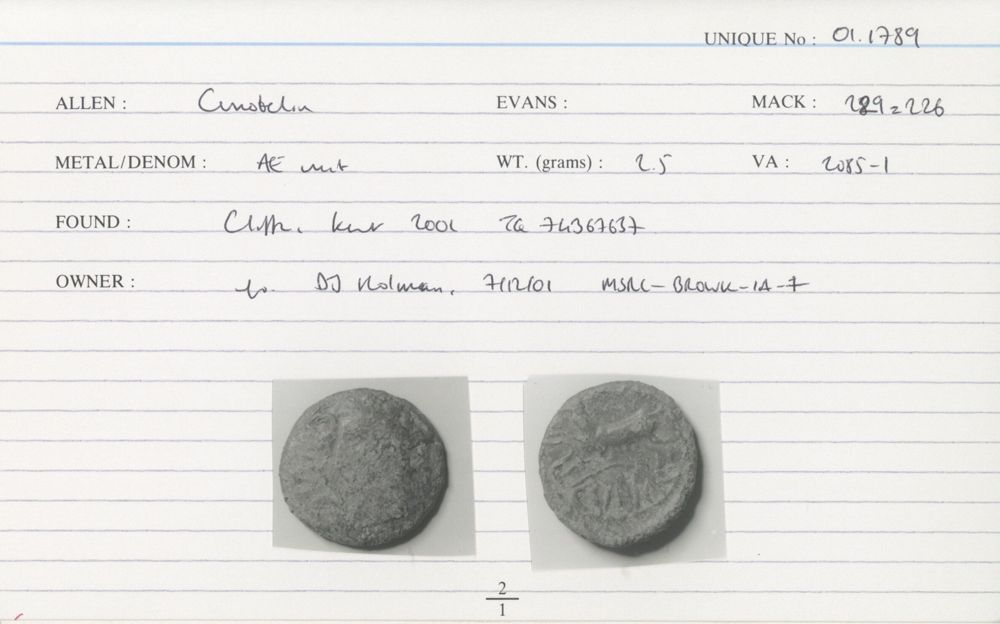 UNIQUE No : 01.1789
ALLEN : Cunobelin EVANS : MACK : 289 = 226
METAL/DENOM : AE unit WT. (grams) : 2.5 VA : 2085-1
FOUND : Cliffe, Kent 2001 TQ 74367637
OWNER : DJ Holman, 7/12/01 MSRC-BROWK-IA-7
2
1